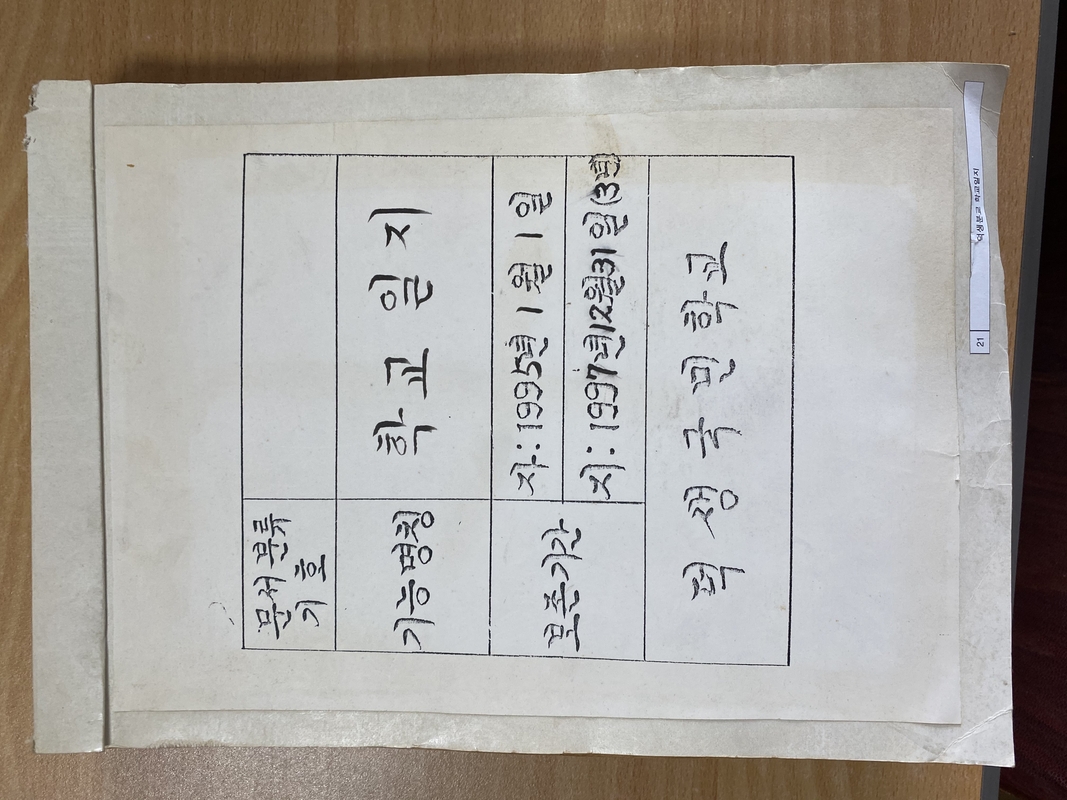 문서 분류
기호
기능명칭 학교일지
보존기간 자:1995년 1월 1일
지:1997년12월31일(3년)
덕생국민학교
21 덕생분교 학교일지